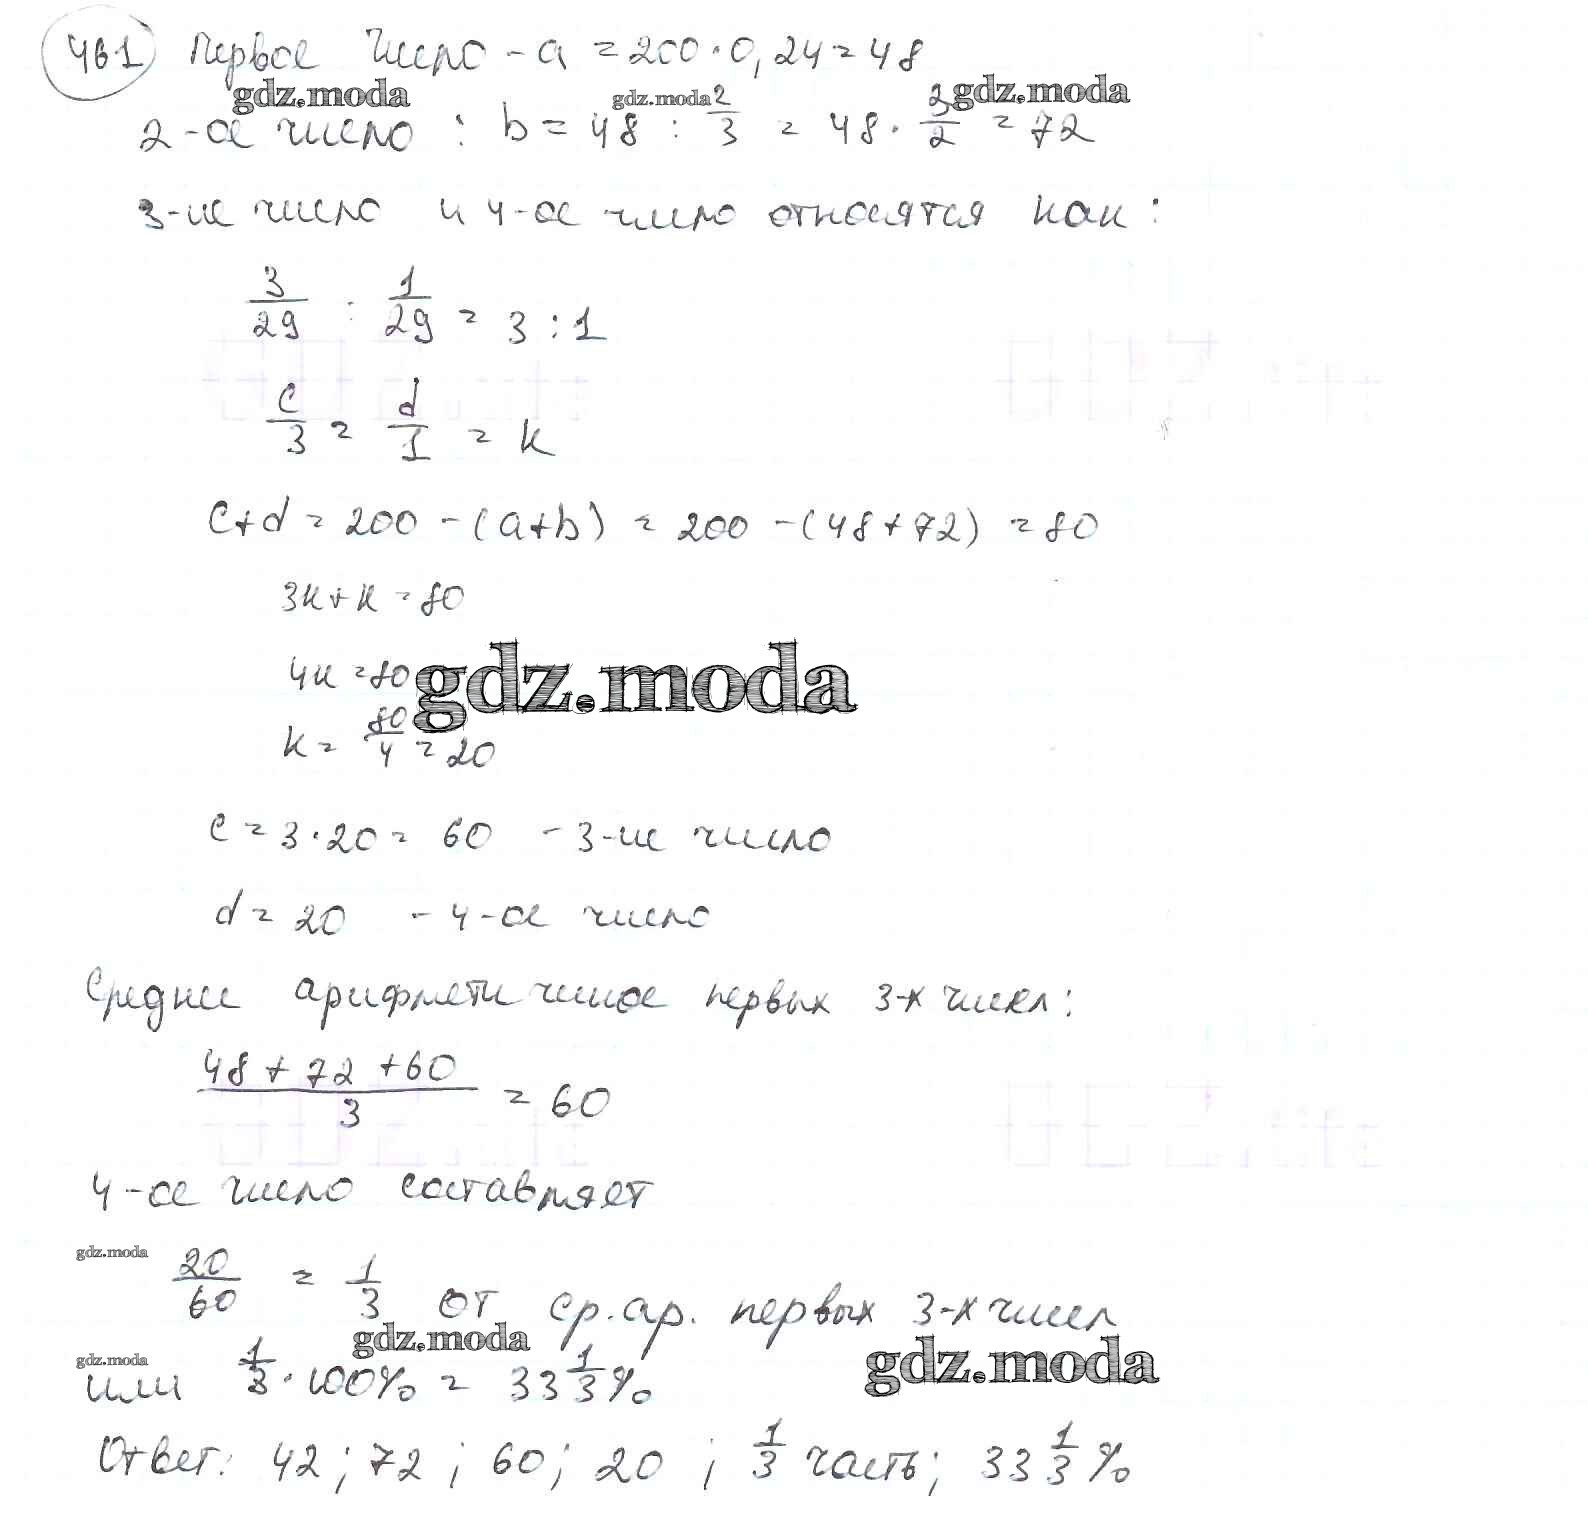 461 Первое число - a = 200 · 0,24 = 48
gdz.moda gdz.moda gdz.moda
2-ое число : b = 48 : 2/3 = 48 · 3/2 = 72
3-ие число и 4-ое число относятся как:
3/29 : 1/29 = 3 : 1
c/3 = d/1 = k
c+d = 200 - (a+b) = 200 - (48+72) = 80
3k+k = 80
4k = 80
gdz.moda
k = 80/4 = 20
c = 3·20 = 60 - 3-ие число
d = 20 - 4-ое число
Среднее арифметическое первых 3-х чисел:
(48 + 72 + 60)/3 = 60
4-ое число составляет
gdz.moda
20/60 = 1/3 от ср. ар. первых 3-х чисел
gdz.moda gdz.moda gdz.moda
или 1/3 · 100% = 33 1/3 %
Ответ: 42 ; 72 ; 60 ; 20 ; 1/3 часть; 33 1/3 %